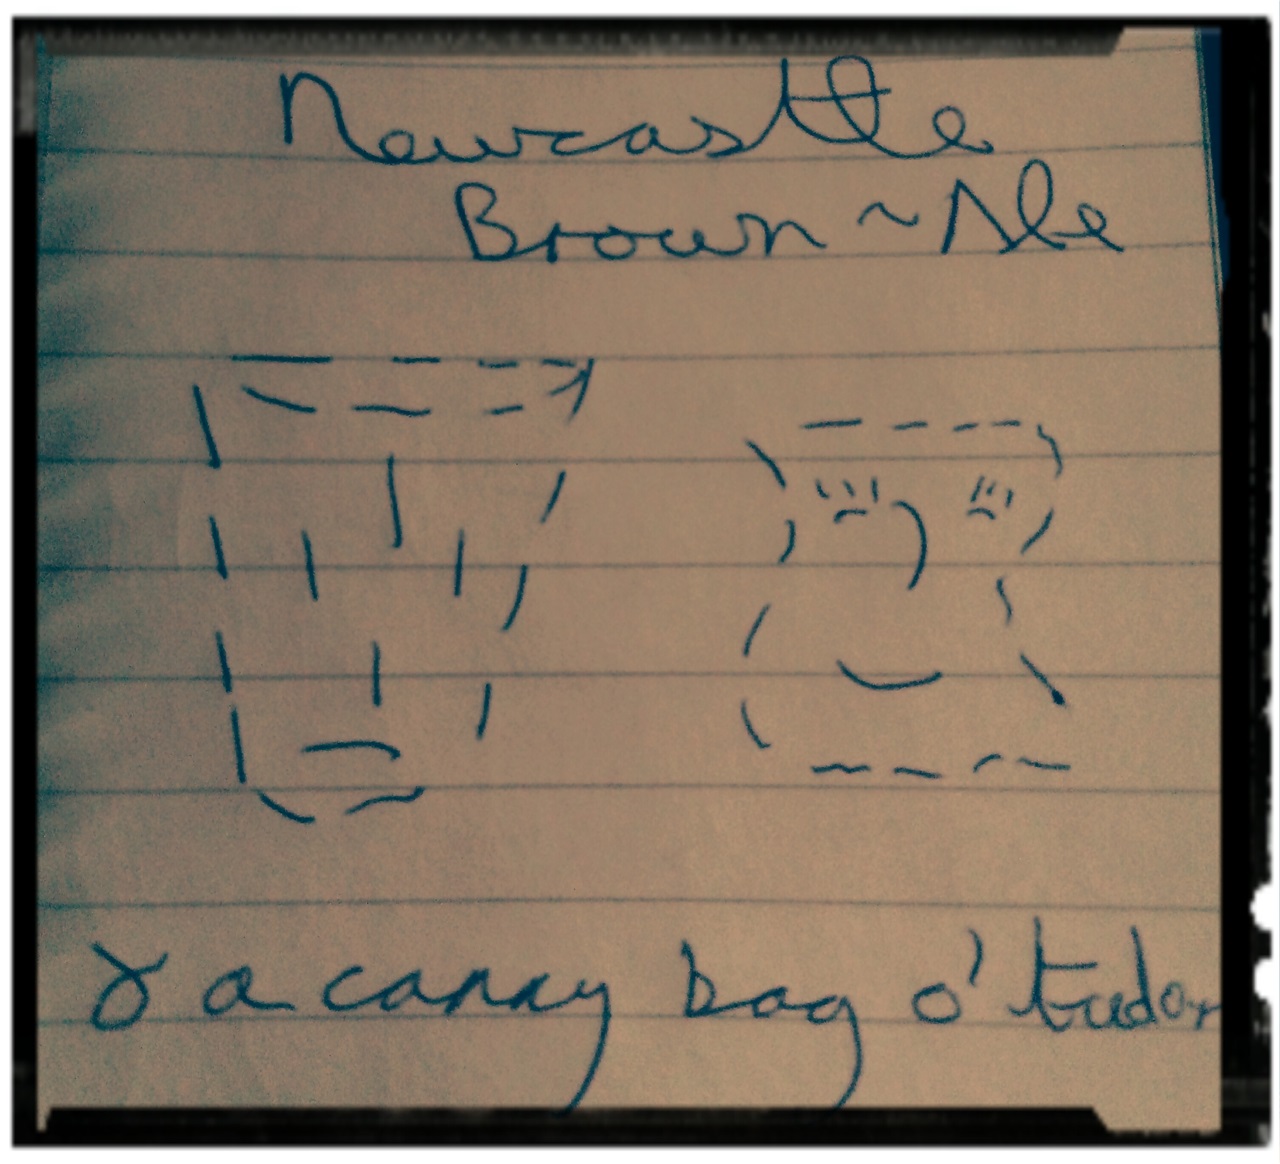 Newcastle
Brown ~ Ale
& a canny bag o' tudor